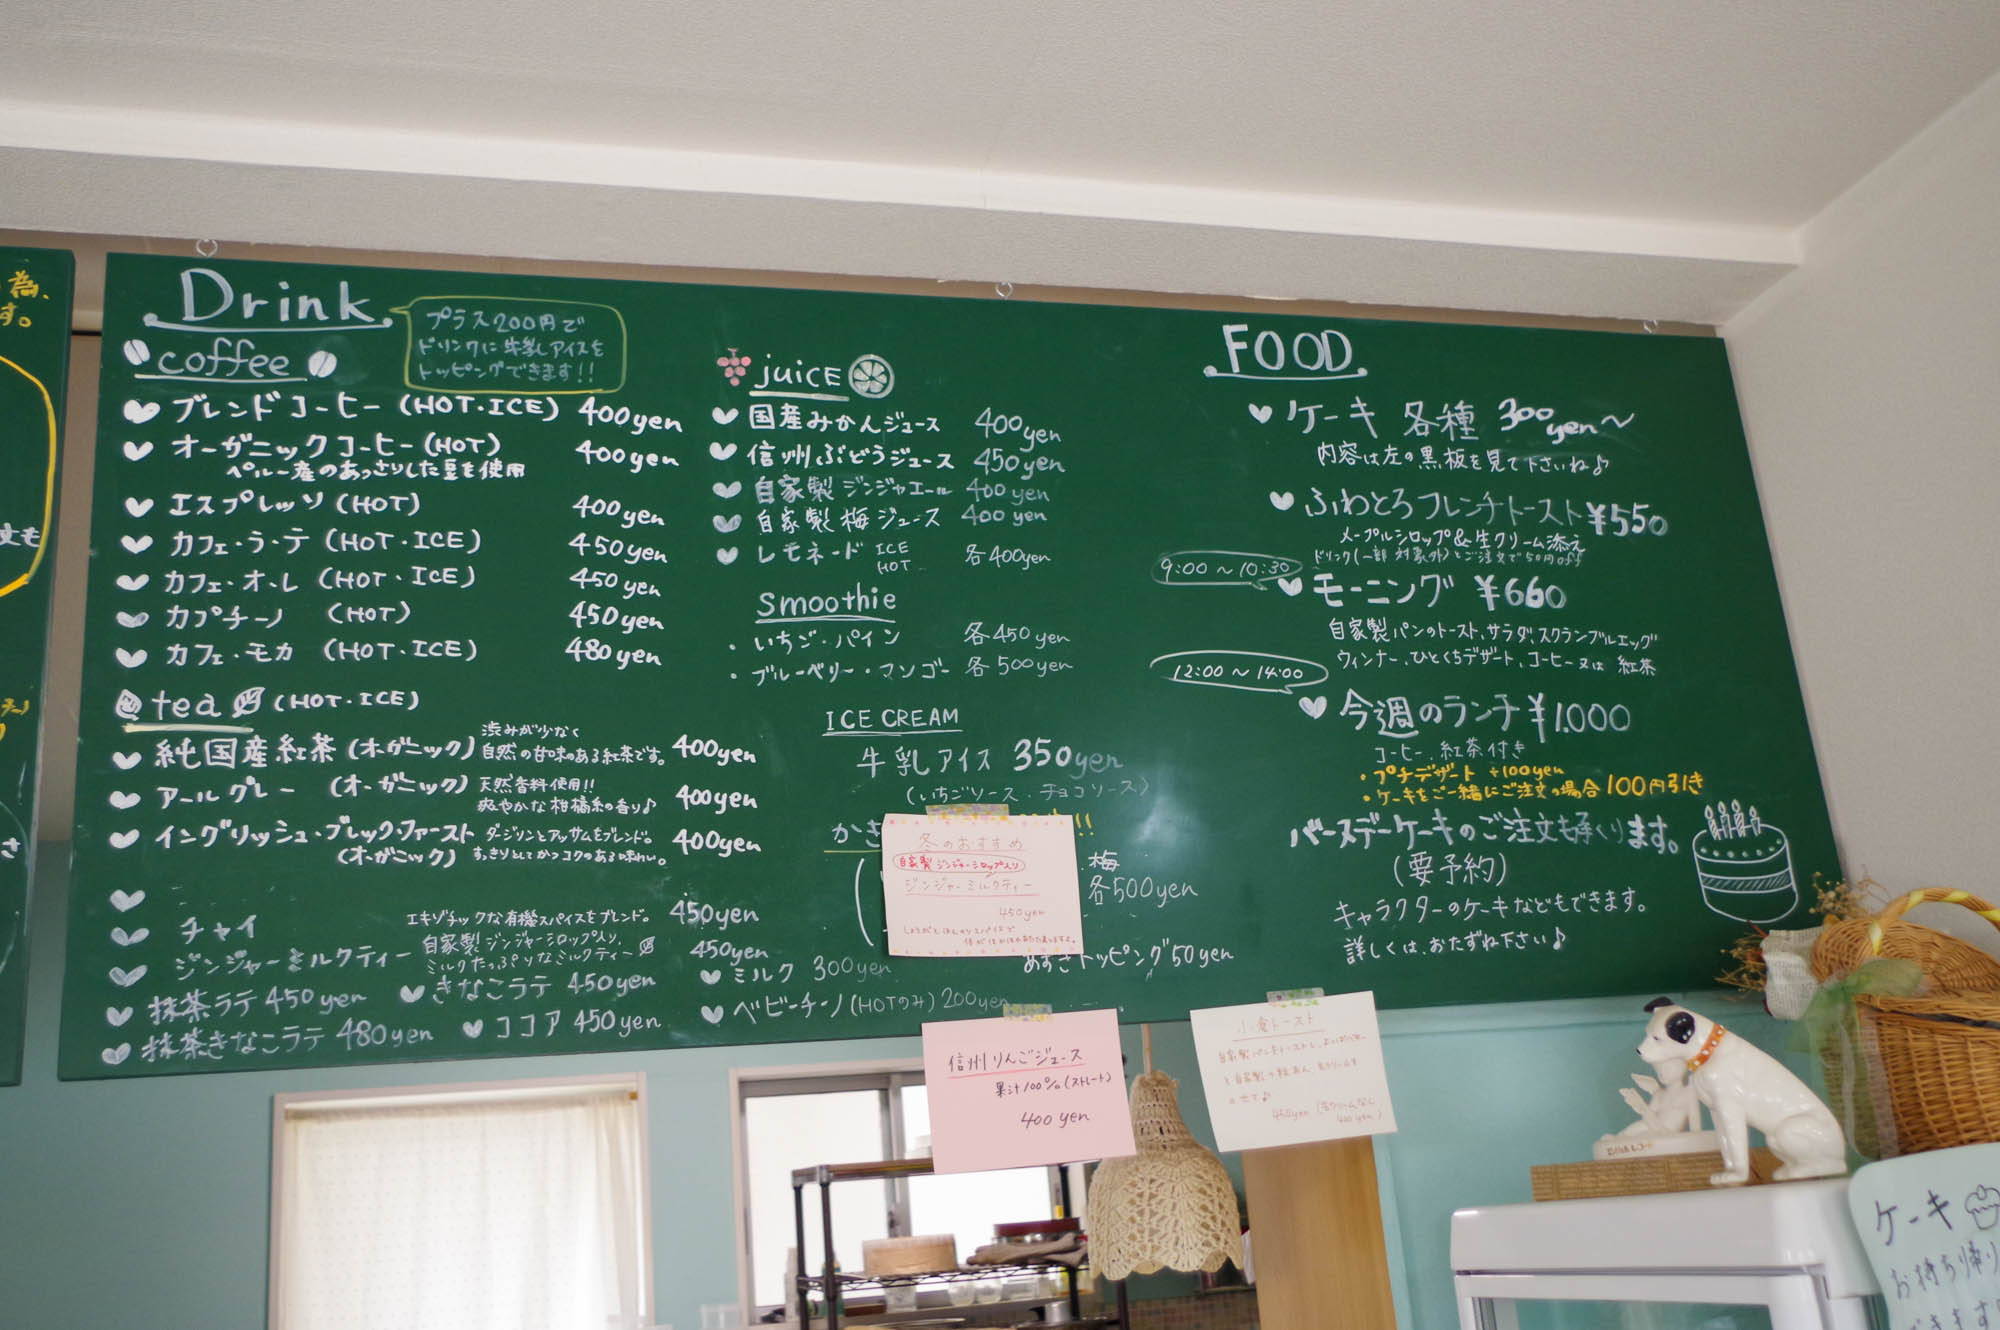 為、
す。
文も
さ
Drink
プラス200円で
ドリンクに牛乳アイスを
トッピングできます!!
coffee
ブレンドコーヒー (HOT・ICE) 400yen
オーガニックコーヒー (HOT) 400yen
ペルー産のあっさりした豆を使用
エスプレッソ (HOT) 400yen
カフェ・ラ・テ (HOT・ICE) 450yen
カフェ・オ・レ (HOT・ICE) 450yen
カプチーノ (HOT) 450yen
カフェ・モカ (HOT・ICE) 480yen
tea (HOT・ICE)
純国産紅茶 (オーガニック) 渋みが少なく
自然の甘味のある紅茶です。 400yen
アールグレー (オーガニック) 天然香料使用!!
爽やかな柑橘系の香り♪ 400yen
イングリッシュ・ブレックファースト ダージリンとアッサムをブレンド。
(オーガニック) すっきりとしてかつコクのある味わい。 400yen
チャイ エキゾチックな有機スパイスをブレンド。 450yen
ジンジャーミルクティー 自家製ジンジャーシロップ入り、
ミルクたっぷりなミルクティー 450yen
抹茶ラテ 450yen きなこラテ 450yen
抹茶きなこラテ 480yen ココア 450yen
juice
国産みかんジュース 400yen
信州ぶどうジュース 450yen
自家製ジンジャエール 400yen
自家製梅ジュース 400yen
レモネード ICE
HOT 各400yen
Smoothie
・いちご・パイン 各450yen
・ブルーベリー・マンゴー 各500yen
ICE CREAM
牛乳アイス 350yen
(いちごソース・チョコソース)
かき !!
梅
各500yen
あずきトッピング50yen
ミルク 300yen
ベビーチーノ (HOTのみ) 200yen
冬のおすすめ
自家製ジンジャーシロップ入り
ジンジャーミルクティー
450yen
しょうがとほんのりスパイスで
体がぽかぽかあたたまりますよ。
信州りんごジュース
果汁100% (ストレート)
400yen
FOOD
ケーキ 各種 300yen〜
内容は左の黒板を見て下さいね♪
ふわとろフレンチトースト ¥550
メープルシロップ&生クリーム添え
ドリンク(一部対象外)とご注文で50円off
9:00〜10:30
モーニング ¥660
自家製パンのトースト、サラダ、スクランブルエッグ
ウィンナー、ひとくちデザート、コーヒー又は紅茶
12:00〜14:00
今週のランチ ¥1.000
コーヒー、紅茶付き
・プチデザート +100yen
・ケーキをご一緒にご注文の場合 100円引き
バースデーケーキのご注文も承ります。
(要予約)
キャラクターのケーキなどもできます。
詳しくは、おたずね下さい♪
小倉トースト
自家製パンをトーストし、
と自家製つぶあん 生クリームを
のせて♪
450yen (生クリームなし
400yen)
ケーキ
お持ち帰り
できます